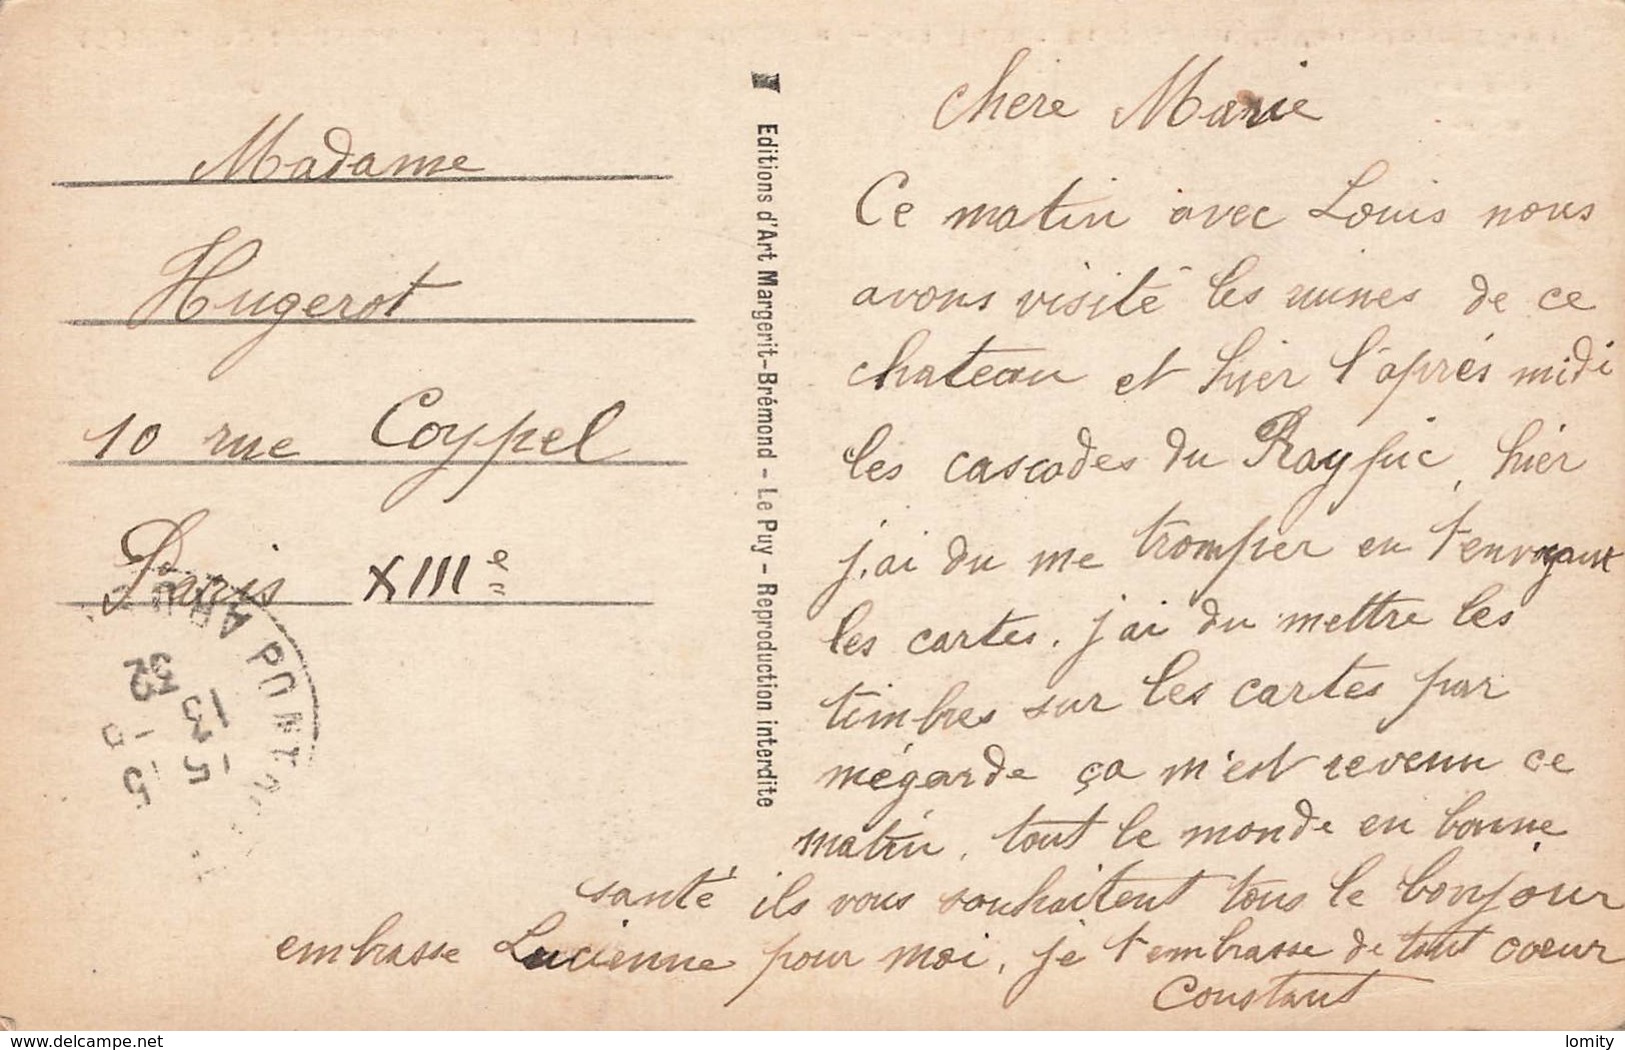 Madame
Hugerot
10 rue Coypel
Paris XIIIe
Editions d'Art Margerit-Brémond - Le Puy - Reproduction interdite
chère Marie
Ce matin avec Louis nous
avons visité les ruines de ce
chateau et hier l'après midi
les cascades du Ray pic, hier
j'ai du me tromper en t'envoyant
les cartes. j'ai du mettre les
timbres sur les cartes par
mégarde ça m'est revenu ce
matin, tout le monde en bonne
santé ils vous souhaitent tous le bonjour
embrasse Lucienne pour moi, je t'embrasse de tout coeur
Constant
PONT
13 15
32
delcampe.net
lomity